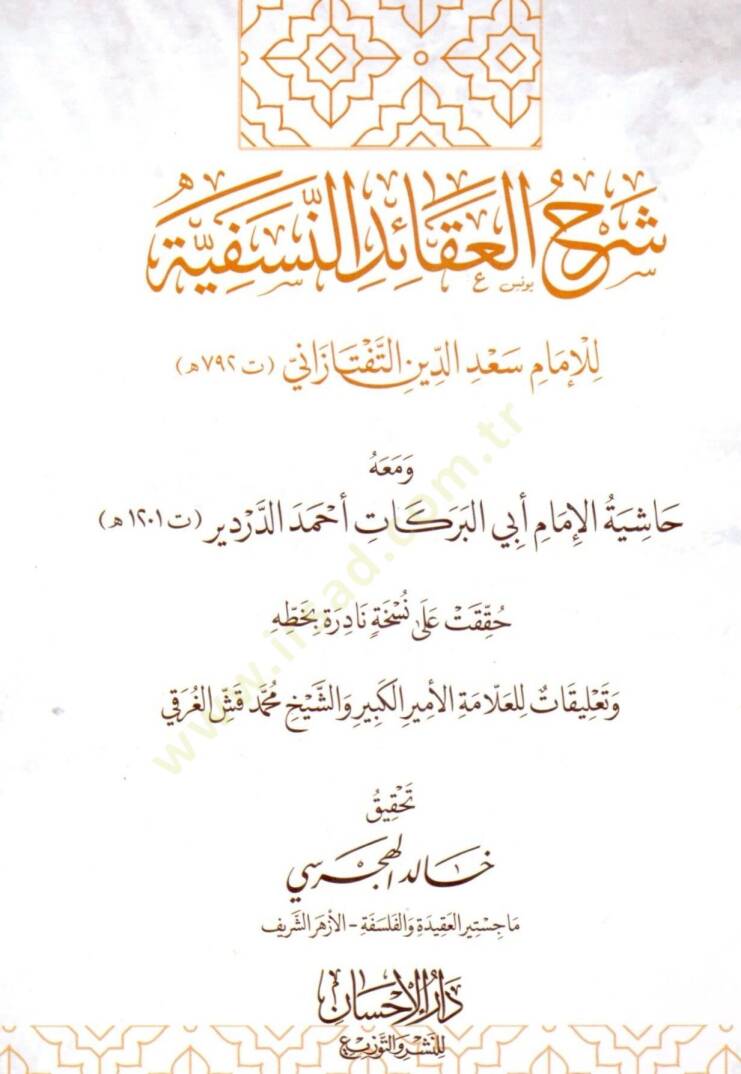 شَرْحُ العَقَائِدِ النَّسَفِيَّة
يونس ع
لِلْإِمَامِ سَعْدِ الدِّينِ التَّفْتَازَانِيّ (ت ٧٩٢ هـ)
وَمَعَهُ
حَاشِيَةُ الإِمَامِ أَبِي البَرَكَاتِ أَحْمَدَ الدَّرْدِير (ت ١٢٠١ هـ)
حُقِّقَتْ عَلَى نُسْخَةٍ نَادِرَةٍ بِخَطِّهِ
وَتَعْلِيقَاتٌ لِلعَلَّامَةِ الأَمِيرِ الكَبِيرِ وَالشَّيْخِ مُحَمَّد قَشّ الغُرَقِي
تَحْقِيقُ
خالد الهجرسي
مَاجِسْتِير العَقِيدَةِ وَالفَلْسَفَةِ - الأَزْهَر الشَّرِيف
دَارُ الإِحْسَان
لِلنَّشْرِ وَالتَّوْزِيع
www.irsad.com.tr